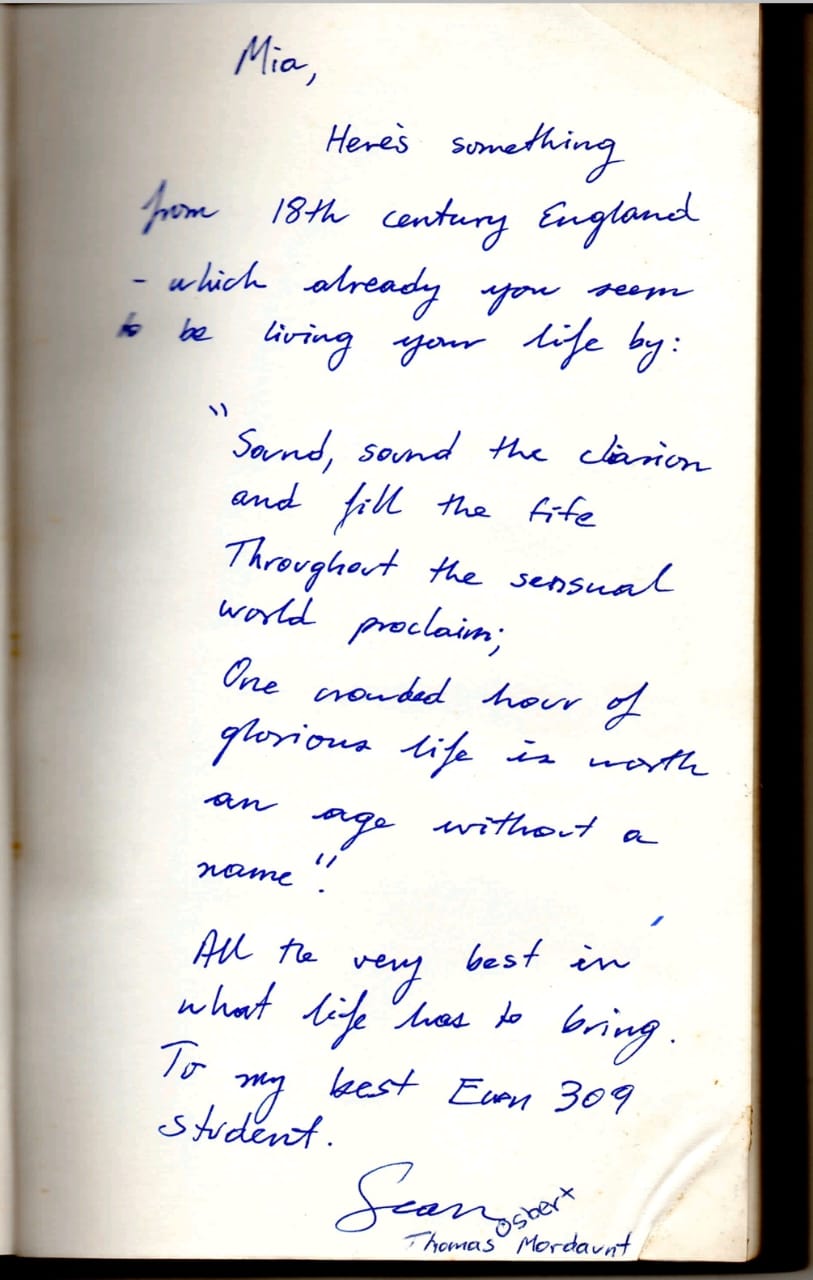 Mia,
Here's something
from 18th century England
- which already you seem
to be living your life by:
"Sound, sound the clarion
and fill the fife
Throughout the sensual
world proclaim;
One crowded hour of
glorious life is worth
an age without a
name".
All the very best in
what life has to bring.
To my best Econ 309
student.
Sean
Osbert
Thomas Mordaunt